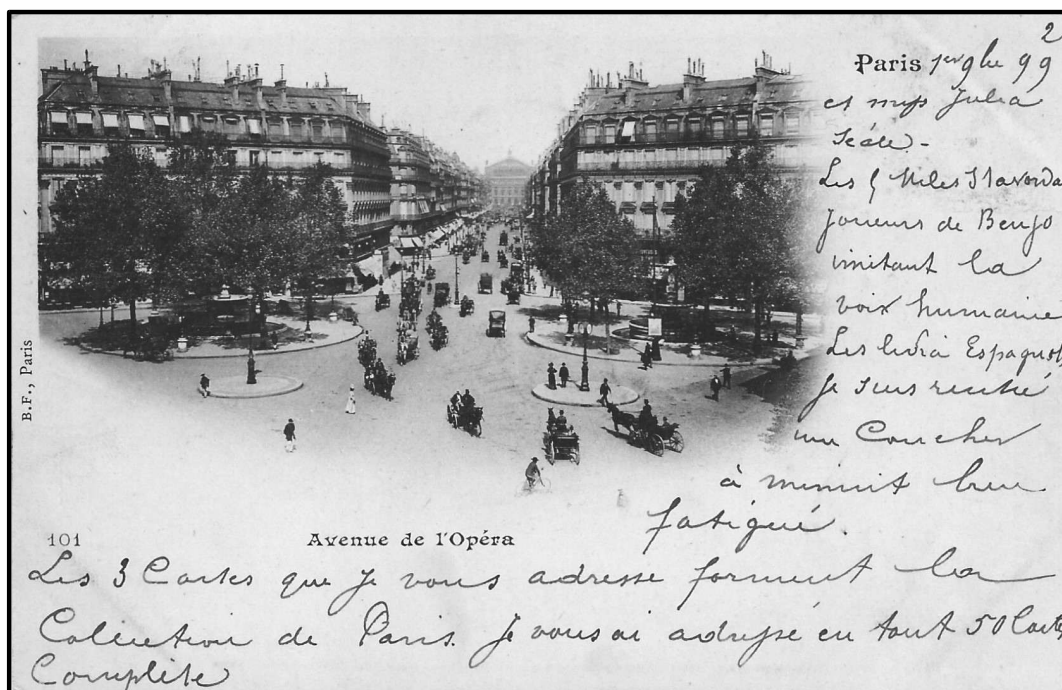 2
Paris 1er 9bre 99
et miss Julia
Les 5 Miles
Joueurs de Benjo
imitant la
voix humaine
Les Espagnols
Je suis rentré
me Coucher
à minuit bien
fatigué.
B.F., Paris
101
Avenue de l'Opéra
Les 3 Cartes que je vous adresse forment la
Collection de Paris. Je vous ai adressé en tout 50 Cartes
Complète